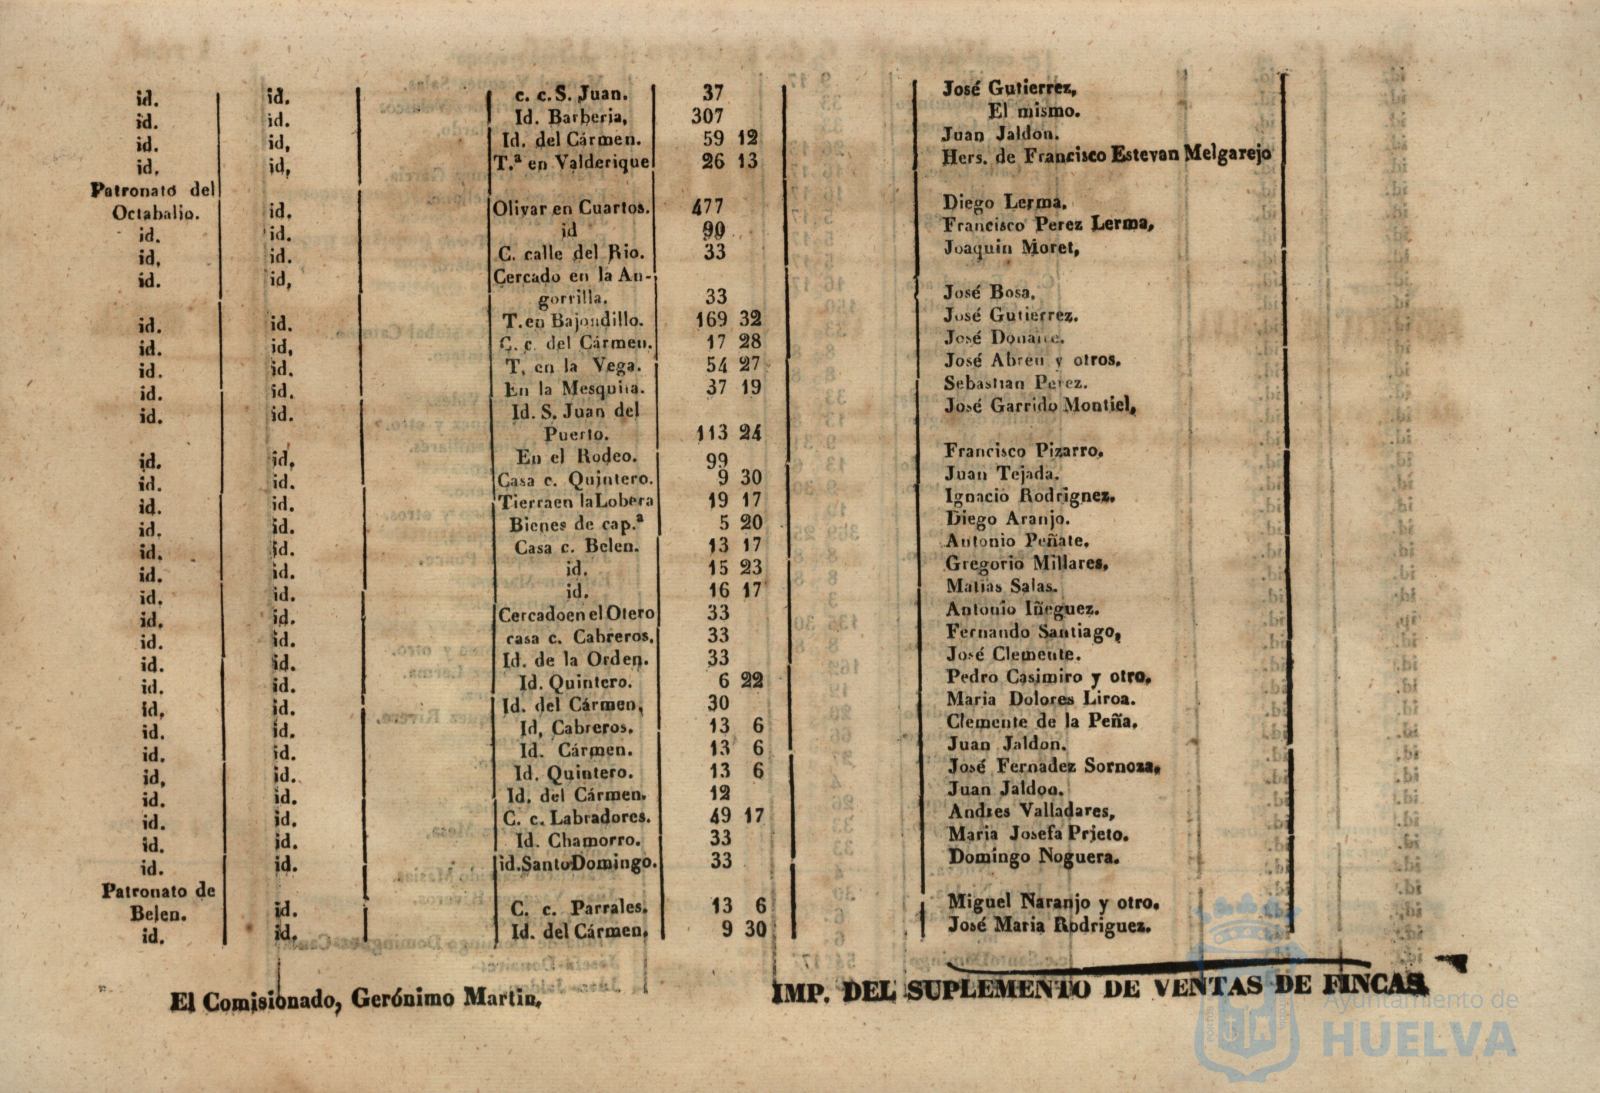 id. id. c. c. S. Juan. 37 José Gutierrez,
id. id. Id. Barberia, 307 El mismo.
id. id, Id. del Cármen. 59 12 Juan Jaldon.
id, id, T.ª en Valderique 26 13 Hers. de Francisco Estevan Melgarejo
Patronato del
Octabalio. id. Olivar en Cuartos. 477 Diego Lerma.
id. id. id 99 Francisco Perez Lerma,
id, id. C. calle del Rio. 33 Joaquin Moret,
id. id, Cercado en la An-
gorrilla. 33 José Bosa.
id. id. T. en Bajondillo. 169 32 José Gutierrez.
id. id, C. c. del Cármen. 17 28 José Donaire.
id. id. T, en la Vega. 54 27 José Abreu y otros.
id. id. En la Mesquita. 37 19 Sebastian Perez.
id. id. Id. S. Juan del
Puerto. 113 24 José Garrido Montiel,
id. id, En el Rodeo. 99 Francisco Pizarro.
id. id. Casa c. Quintero. 9 30 Juan Tejada.
id. id. Tierra en la Lobera 19 17 Ignacio Rodrignez.
id. id. Bienes de cap.ª 5 20 Diego Aranjo.
id. id. Casa c. Belen. 13 17 Antonio Peñate.
id. id. id. 15 23 Gregorio Millares,
id. id. id. 16 17 Matias Salas.
id. id. Cercado en el Otero 33 Antonio Iñeguez.
id. id. casa c. Cabreros, 33 Fernando Santiago,
id. id. Id. de la Orden. 33 José Clemente.
id. id. Id. Quintero. 6 22 Pedro Casimiro y otro.
id, id. Id. del Cármen, 30 Maria Dolores Liroa.
id. id. Id, Cabreros. 13 6 Clemente de la Peña.
id. id. Id. Cármen. 13 6 Juan Jaldon.
id, id. Id. Quintero. 13 6 José Fernadez Sornoza,
id. id. Id. del Cármen. 12 Juan Jaldon.
id. id. C. c. Labradores. 49 17 Andres Valladares,
id. id. Id. Chamorro. 33 Maria Josefa Prieto.
id. id. id. Santo Domingo. 33 Domingo Noguera.
Patronato de
Belen. id. C. c. Parrales. 13 6 Miguel Naranjo y otro.
id. id. Id. del Cármen, 9 30 José Maria Rodriguez.
El Comisionado, Gerónimo Martin.
IMP. DEL SUPLEMENTO DE VENTAS DE FINCAS
Ayuntamiento de
HUELVA